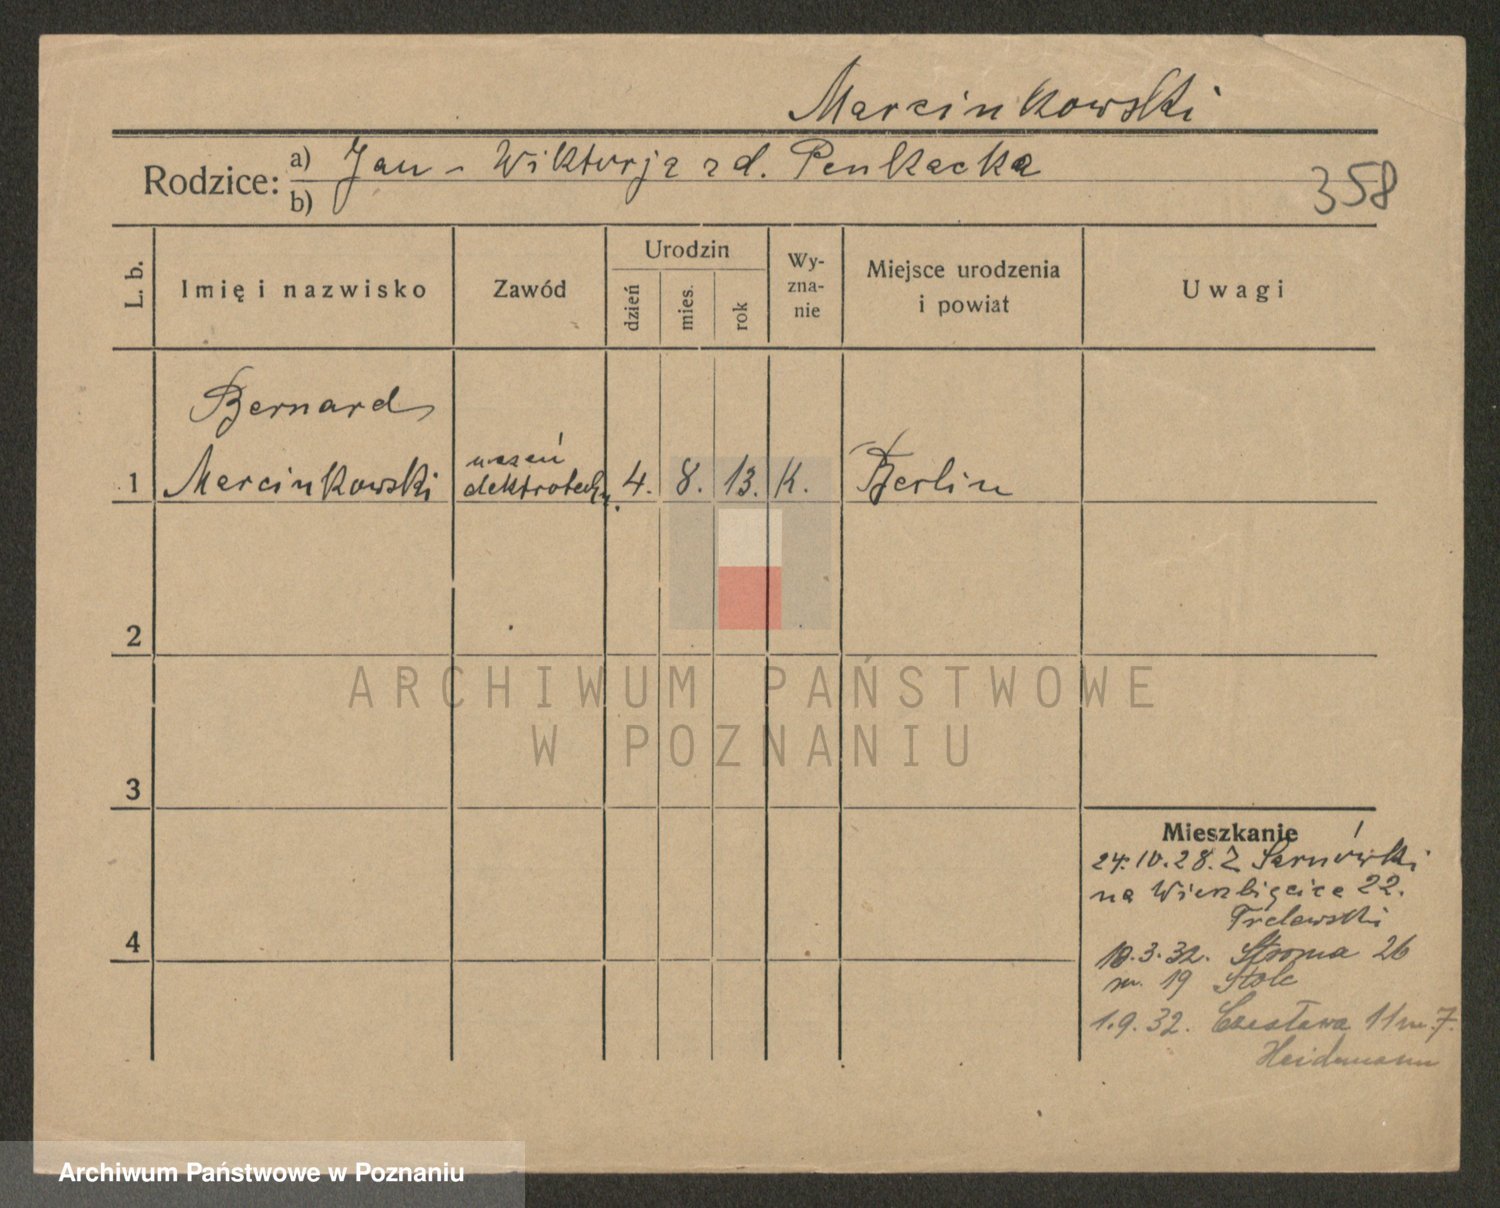 Marcinkowski
Rodzice: a) Jan - Wiktorja z d. Penkacka
b)
358
L. b.
Imię i nazwisko
Zawód
Urodzin
dzień
mies.
rok
Wy-
zna-
nie
Miejsce urodzenia
i powiat
Uwagi
Bernard
1 Marcinkowski
uczeń
elektrotechn.
4. 8. 13. K. Berlin
2
ARCHIWUM PAŃSTWOWE
W POZNANIU
3
4
Mieszkanie
24.10.28. Z Sarnówki
na Wierzbięcice 22.
Trelewski
10.3.32. Stroma 26
m. 19 Stolc
1.9.32. Czesława 11 m. 7.
Heidemann
Archiwum Państwowe w Poznaniu